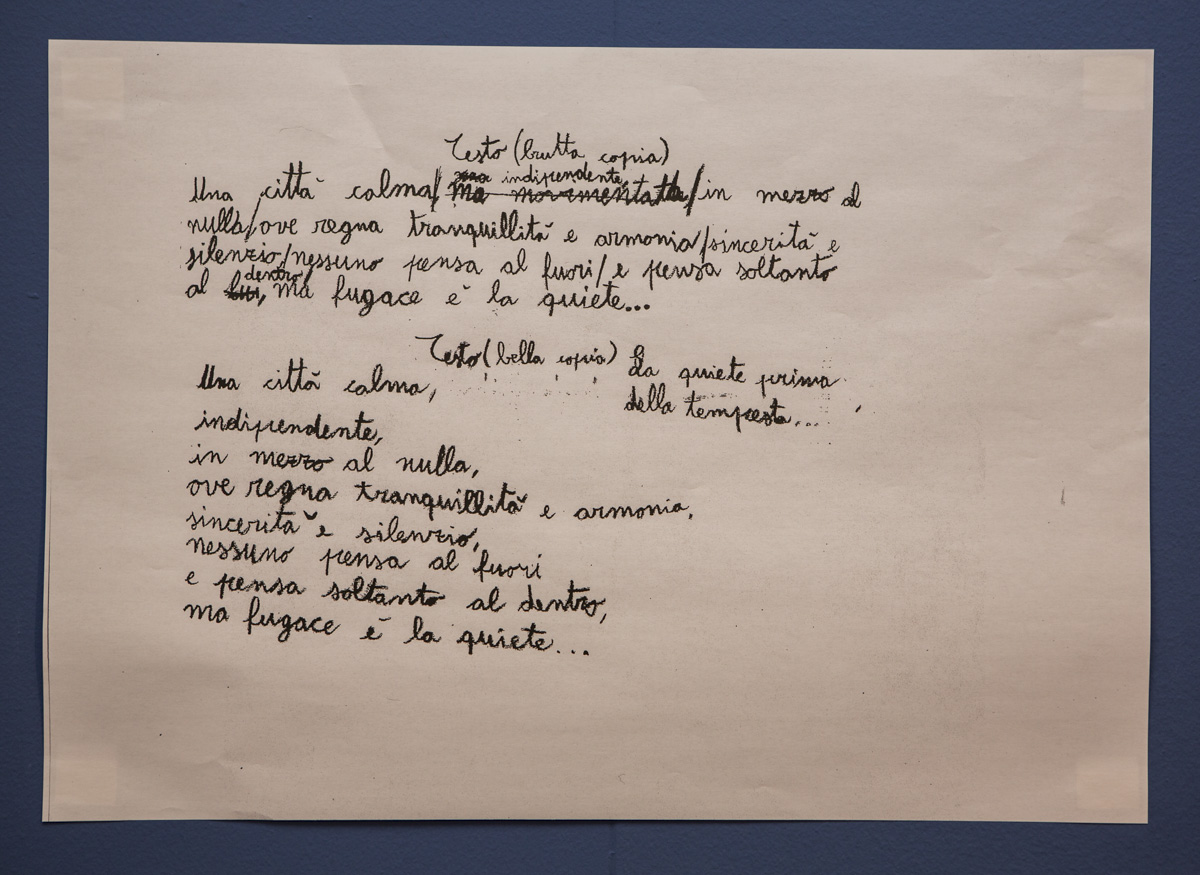 Testo (brutta copia)
indipendente,
Una città calma/ ma movimentata/in mezzo al
nulla/ove regna tranquillità e armonia/sincerità e
silenzio/nessuno pensa al fuori/e pensa soltanto
dentro,
al ma fugace è la quiete...
Testo (bella copia) La quiete prima
della tempesta...
Una città calma,
indipendente,
in mezzo al nulla,
ove regna tranquillità e armonia,
sincerità e silenzio,
nessuno pensa al fuori
e pensa soltanto al dentro,
ma fugace è la quiete...